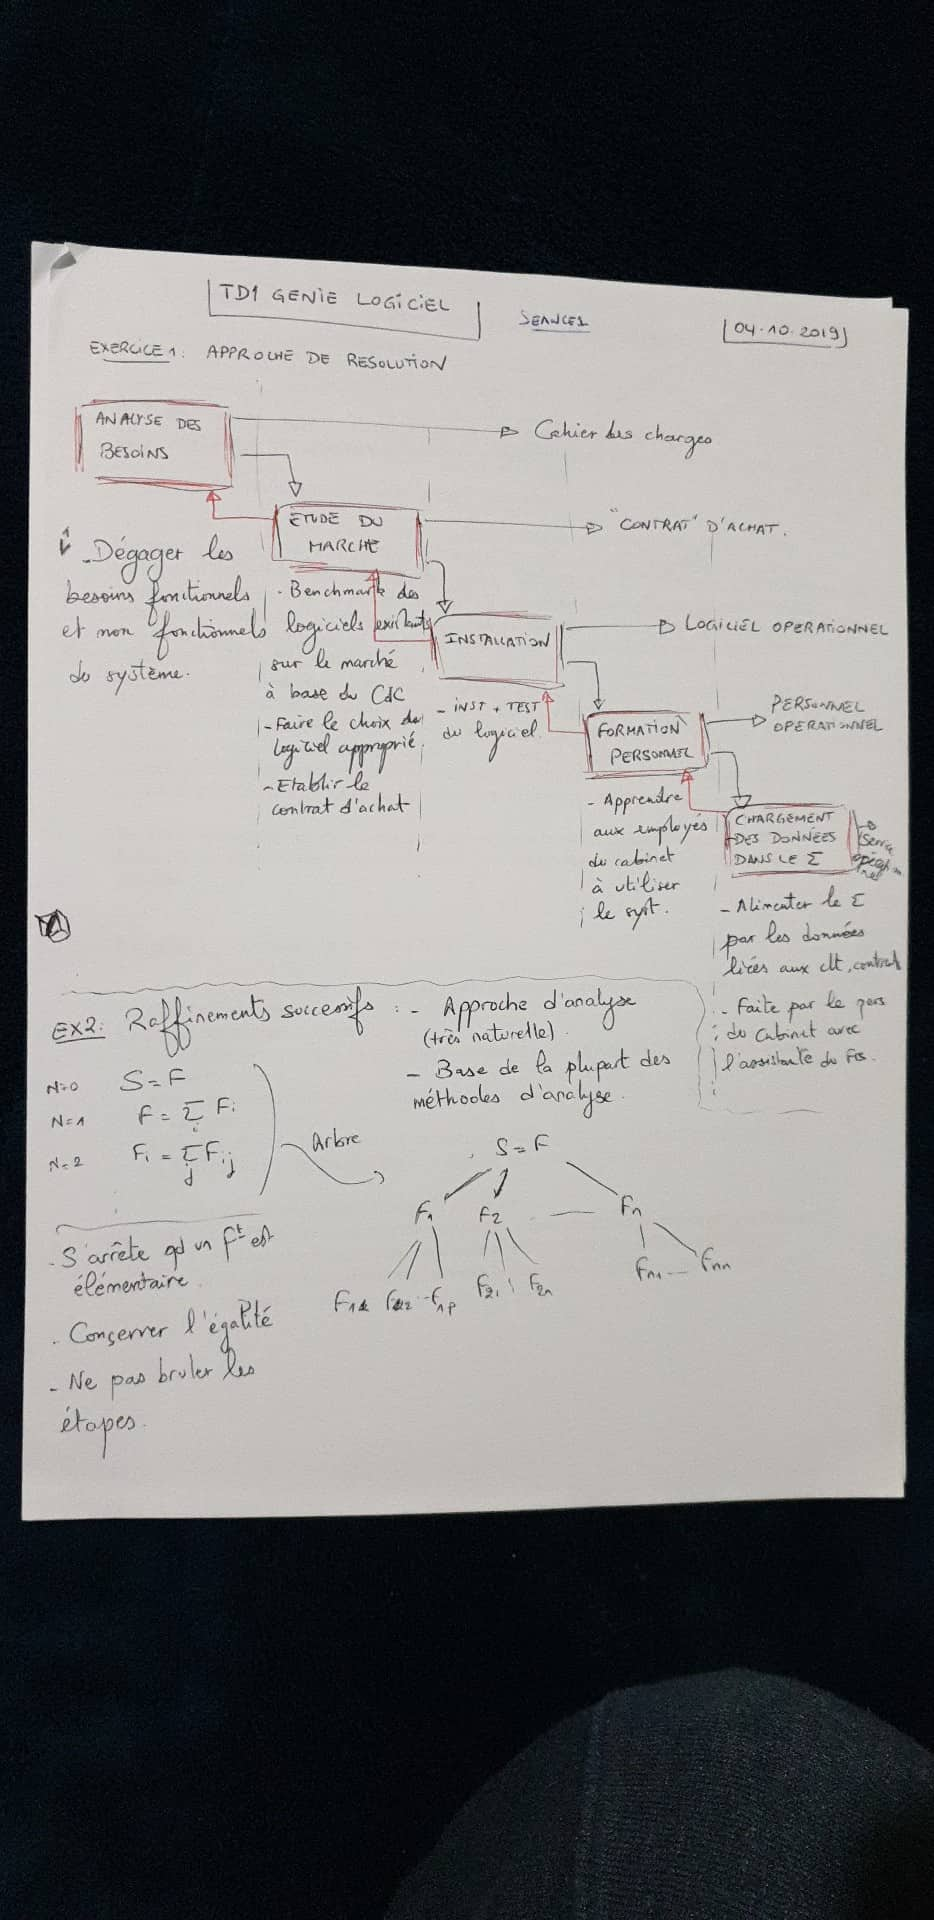 TD1 GENIE LOGICIEL
SEANCE1
04.10.2019
EXERCICE 1: APPROCHE DE RESOLUTION
ANALYSE DES
BESOINS
Cahier des charges
ETUDE DU
MARCHE
"CONTRAT" D'ACHAT.
- Dégager les
besoins fonctionnels
et non fonctionnels
du système.
- Benchmark des
logiciels existants
sur le marché
à base du CdC
- Faire le choix du
logiciel approprié.
- Etablir le
contrat d'achat
INSTALLATION
LOGICIEL OPERATIONNEL
- INST + TEST
du logiciel.
FORMATION
PERSONNEL
PERSONNEL
OPERATIONNEL
- Apprendre
aux employés
du cabinet
à utiliser
le syst.
CHARGEMENT
DES DONNÉES
DANS LE Σ
Service
- Alimenter le Σ
par les données
liées aux clt, contrats
- Faite par le pers
du Cabinet avec
l'assistante du
EX2: Raffinements successifs : - Approche d'analyse
(très naturelle).
- Base de la plupart des
méthodes d'analyse.
N=0 S=F
N=1 F = Σ Fi
i
N=2 Fi = Σ Fij
j
Arbre
S=F
F1 F2 — Fn
F11 F12 .. F1p F21 F2n Fn1 ... Fnn
. S'arrête qd un Ft est
élémentaire.
. Conserver l'égalité
- Ne pas bruler les
étapes.